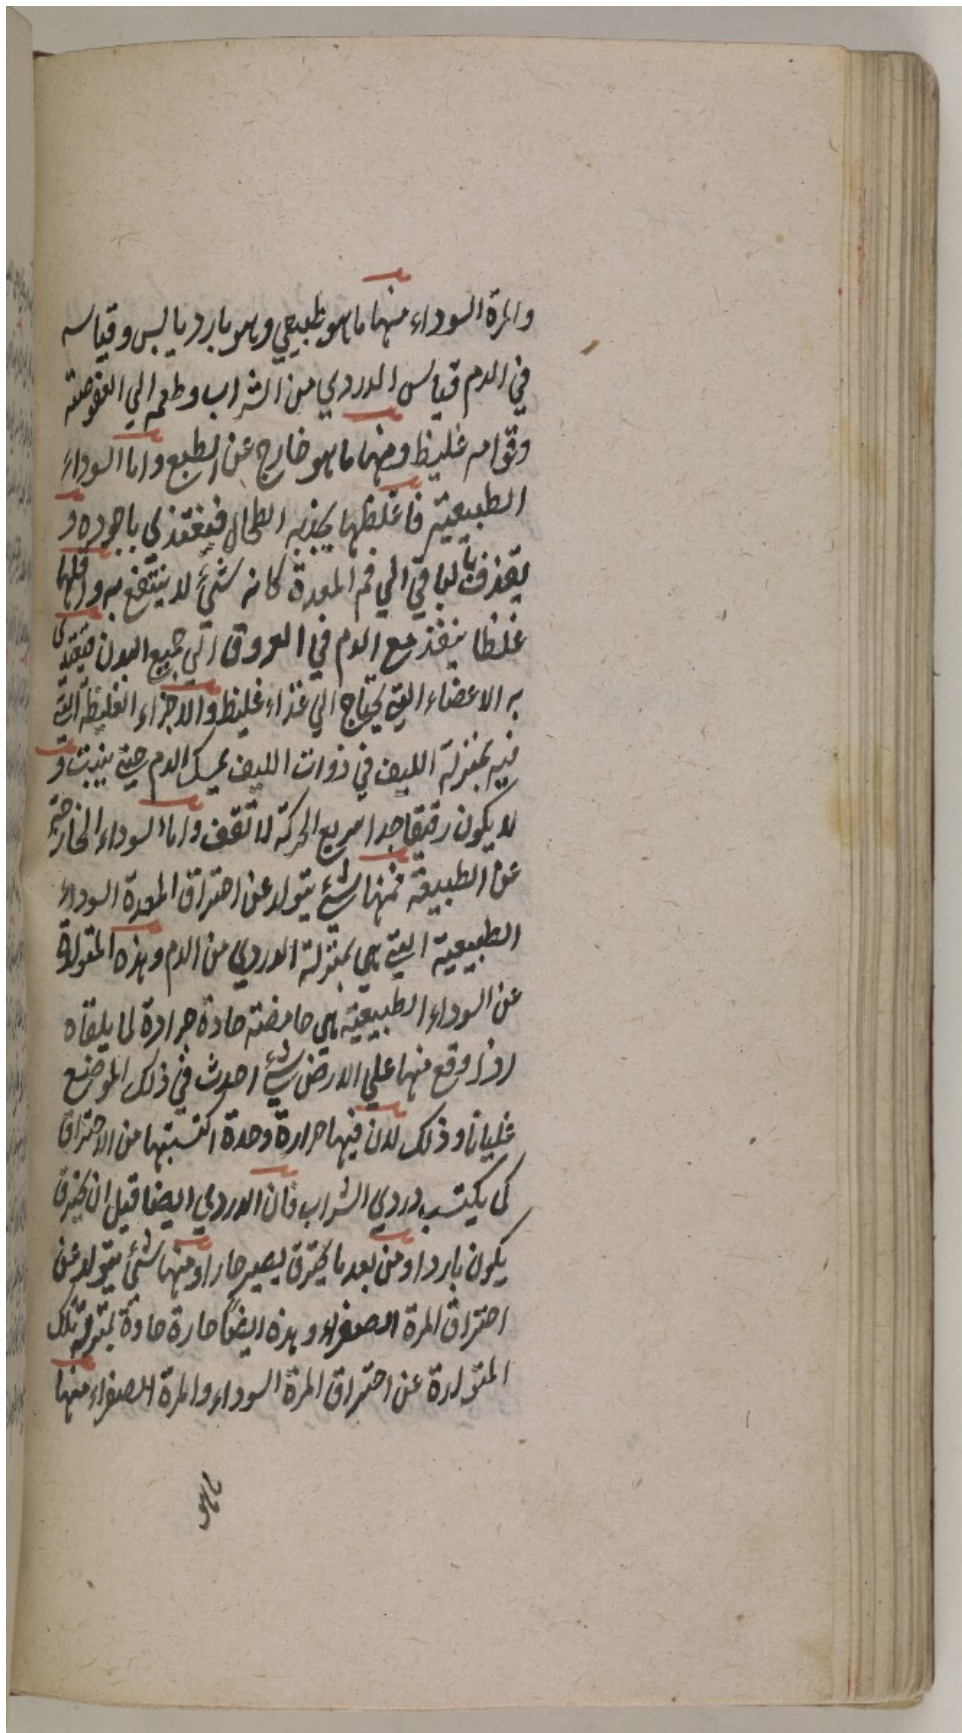 والمرة السوداء منها ما هو طبيعي وهو بارد يابس وقياسه
في الدم قياس الدردي من الشراب وطعمه الي العفوصة
وقوامه غليظ ومنها ما هو خارج عن الطبع واما السوداء
الطبيعية فاغلظها يجذبه الطحال فيغتذي باجوده و
يقذف بالباقي الي فم المعدة كانه شيء لا ينتفع به واقلها
غلظا ينفذ مع الدم في العروق الي جميع البدن فيغتذي
به الاعضاء التي يحتاج الي غذاء غليظ والاجزاء الغليظة التي
فيه بمنزلة الليف في ذوات الليف يمسك الدم حتي يثبت و
لا يكون رقيقا جدا سريع الحركة لا تقف واما السوداء الخارجة
عن الطبيعة فمنها شيء يتولد عن احتراق المعدة السوداء
الطبيعية التي هي بمنزلة الدردي من الدم وهذه المتولدة
عن السوداء الطبيعية هي حامضة حادة جرادة لما يلقاه
اذا وقع منها علي الارض شيء احدث في ذلك الموضع
غليانا وذلك لان فيها حرارة وحدة اكتسبتها من الاحتراق
كما يكتسب دردي الشراب فان الدردي ايضا قبل ان يحترق
يكون باردا ومن بعد ما يحترق يصير حارا ومنها شيء يتولد عن
احتراق المرة الصفراء وهذه ايضا حارة حادة بمنزلة تلك
المتولدة عن احتراق المرة السوداء والمرة الصفراء منها
ما هو